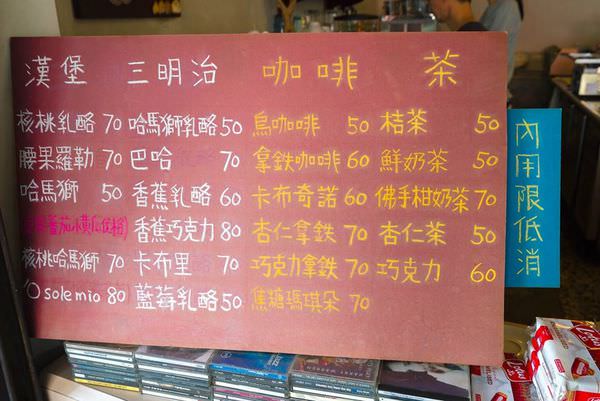 漢堡 三明治 咖啡 茶
核桃乳酪 70 哈馬獅乳酪 50 烏咖啡 50 桔茶 50
腰果羅勒 70 巴哈 70 拿鉄咖啡 60 鮮奶茶 50
哈馬獅 50 香蕉乳酪 60 卡布奇諾 60 佛手柑奶茶 70
番茄 香蕉巧克力 80 杏仁拿鉄 70 杏仁茶 50
核桃哈馬獅 70 卡布里 70 巧克力拿鉄 70 巧克力 60
O sole mio 80 藍莓乳酪 50 焦糖瑪琪朵 70
內用限低消